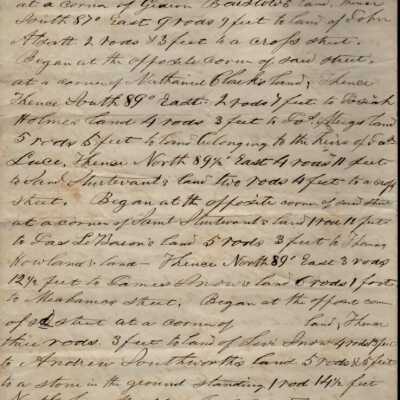 at a corner of Gideon Bradford's land, thence
South 87° East 9 rods 9 feet to land of John
Alcott 2 rods & 3 feet to a cross street.
Began at the opposite corner of said street,
at a corner of Nathaniel Clark's land; Thence
Thence South 89° East 2 rods 7 feet to Josiah
Holmes land 4 rods 3 feet to land
5 rods 5 feet to land belonging to the heirs of
Luce, Thence North 89¾° East 4 rods 11 feet
to Sam Sturtevant's land two rods 4 feet to a cross
street. Began at the opposite corner of said street
at a corner of Saml Sturtevant's land 1 rod 11 feet
to Jas LeBaron's land 5 rods 3 feet to Thomas
Howland's land – Thence North 89° East 3 rods
12½ feet to James Snow's land 6 rods 1 foot
to street. Began at the opposit corner
of sd street at a corner of land, Thence
three rods 3 feet to land of Levi Snow 4 rods feet
to Andrew Southworth's land 5 rods & 5 feet
to a stone in the ground standing 1 rod 14½ feet